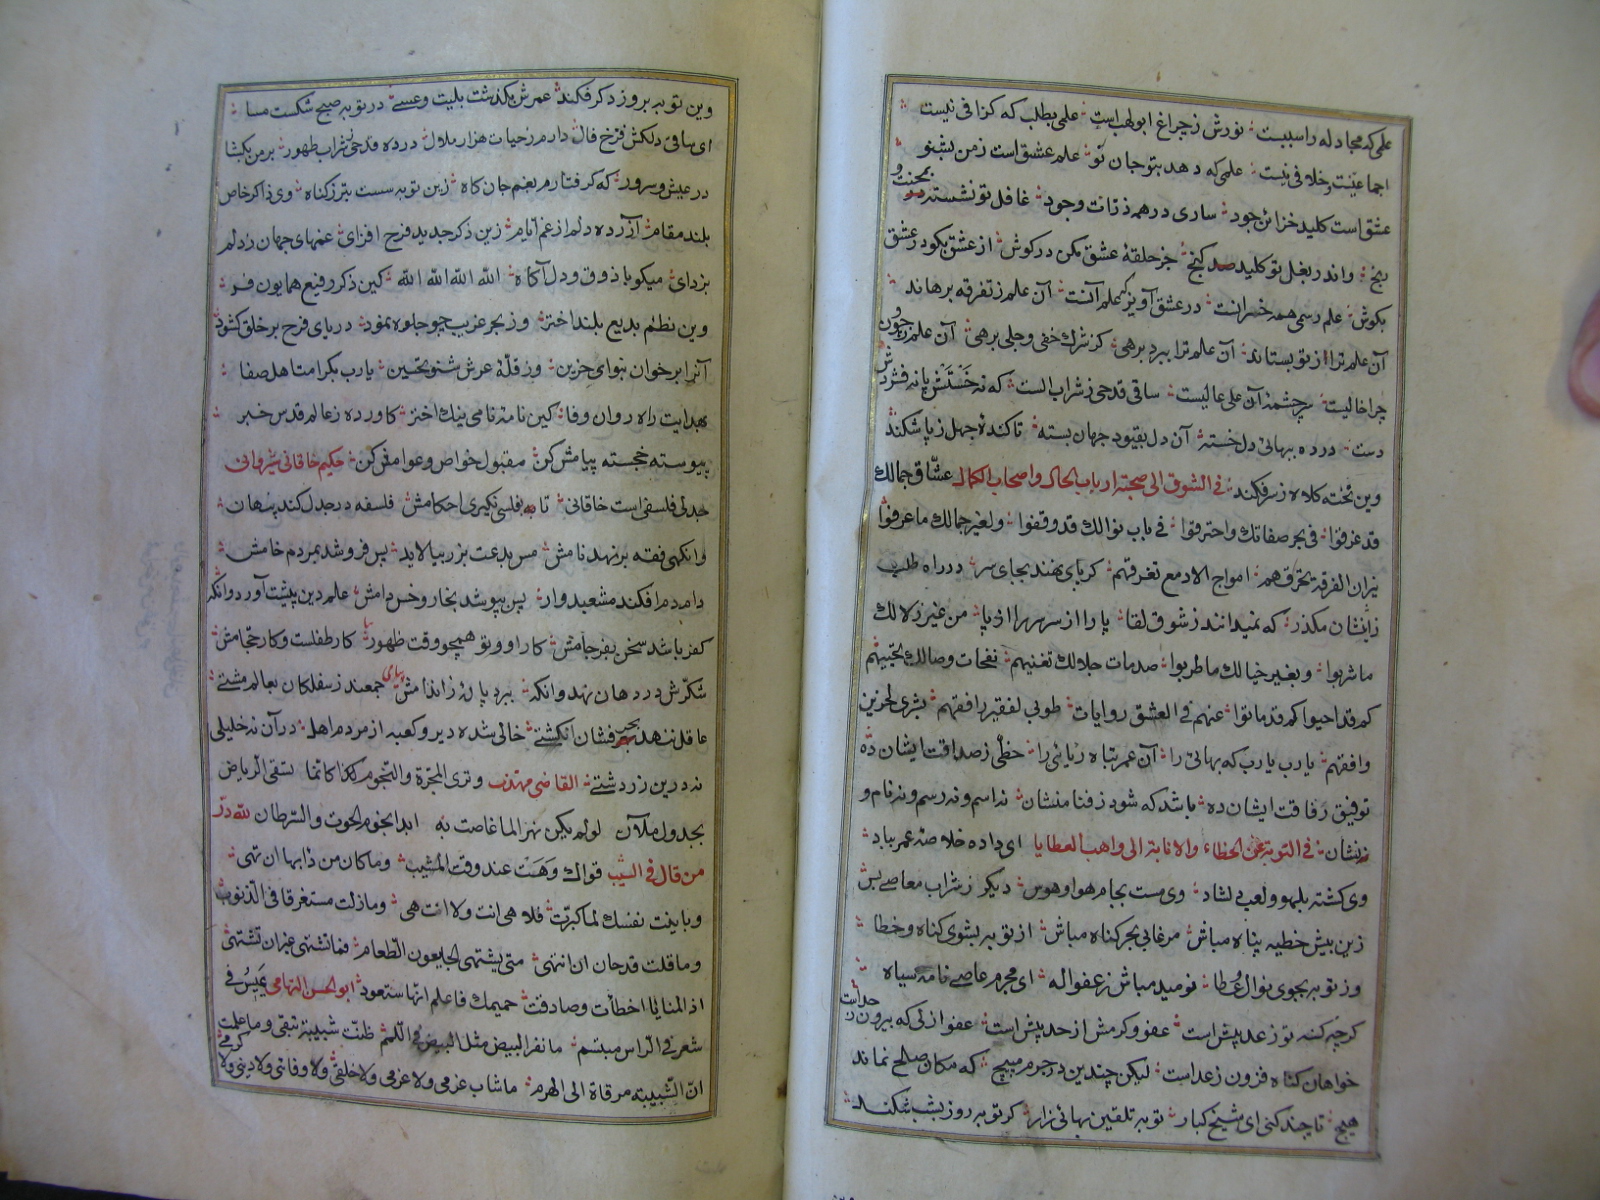 علمی که مجادله را سببست نورش ز چراغ ابولهب است علمی بطلب که کزافی نیست
اجماعیّنست و خلافی نیست علمی که دهد بتو جان نو علم عشق است ز من بشنو
عشق است کلید خزائن جود ساری در همه ذرّات وجود غافل تو نشسته بمحنت و
رنج واندر بغل تو کلید صد کنج جز حلقهٔ عشق مکن در کوش از عشق بکو در عشق
بکوش علم رسمی همه خسرانست در عشق آویز که علم آنست آن علم ز تفرقه برهاند
آن علم ترا از تو بستاند آن علم ترا ببرد برهی کز شرک خفی و جلی برهی آن علم ز چون و
چرا خالیست سرچشمهٔ آن علی عالیست ساقی قدحی ز شراب الست که نه خستش پا نه فشردش
دست در ده ببهائی دل خسته آن دل بقیود جهان بسته تا کندهٔ جهل ز پا شکند
وین تخته کلاه ز سر فکند فی الشوق الی صحبة ارباب الحال و اصحاب الکمال عشّاق جمالک
قد غرقوا فی بحر صفاتک واحترقوا فی باب نوالک قد وقفوا ولغیر جمالک ما عرفوا
نیران الفرقة تحرقهم امواج الادمع تغرقهم کر پای نهند بجای سر در راه طلب
ز ایشان مکذر که نمیدانند ز شوق لقا پا را از سر سر را از پا من غیر زلالک
ما شربوا وبغیر خیالک ما طربوا صدمات جلالک تفنیهم نفحات وصالک تحییهم
کم قد احیوا کم قد ماتوا عنهم فی العشق روایات طوبی لفقیر رافقهم بشری لحزین
وافقهم یا رب یا رب که بهائی را آن عمر تباه ریائی را حظّی ز صداقت ایشان ده
توفیق رفاقت ایشان ده باشد که شود ز فنا منشان نه اسم و نه رسم و نه نام و
نشان فی التوبة عن الخطاء والانابة الی واهب العطایا ای داده خلاصهٔ عمر بباد
وی کشته بلهو ولعب دلشاد وی مست بجام هوا و هوس دیکر ز شراب معاصی بس
زین بیش خطیه پناه مباش مرغابی بحر کناه مباش از توبه بشوی کناه و خطا
وز توبه بجوی نوال و عطا نومید مباش ز عفو اله ای مجرم عاصی نامه سیاه
کرچه کنه تو ز عد بیش است عفو و کرمش از حد بیش است عفو ازلی که برون ز حد است
خواهان کناه فزون ز عد است لیکن چندین در جرم مپیچ که مکان صلح نماند
هیچ تا چند کنی ای شیخ کبار توبه تلقین بهائی زار کو توبه بروز بشب شکند
وین توبه بروز دکر فکند عمرش بکذشت بلیت وعسی در توبه صبح شکست مسا
ای ساقی دلکش فرّخ فال دارم ز حیات هزار ملال در ده قدحی ز شراب طهور بر من بکشا
در عیش و سرور که کرفتارم بغم جان کاه زین توبه سست بتر ز کناه وی ذاکر خاص
بلند مقام آزرده دلم از غم ایام زین ذکر جدید فرح افزای غمهای جهان ز دلم
بزدای میکو با ذوق و دل آکاه الله الله الله الله کین ذکر رفیع همایون فر
وین نظم بدیع بلند اختر وز بحر عزیب چو جلوه نمود درهای فرح بر خلق کشود
آنرا بر خوان بنوای حزین وز قلّهٔ عرش شنو تحسین یا رب بکرامت اهل صفا
بهدایت راه روان وفا کین نامهٔ نامی نیک اختر کاورده ز عالم قدس خبر
پیوسته خجسته پیامش کن مقبول خواص و عوامش کن حکیم خاقانی شروانی
جدلی فلسفی است خاقانی تا بفلسی نکیری احکامش فلسفه در جدل کند پنهان
وانکهی فقه بر نهد نامش مس بدعت بزر بیالاید پس فروشد بمردم خامش
دام دم افکند مشعبدوار پس بپوشد بخار و خس دامش علم دین پیشت آورد وانکه
کفر باشد سخن بفرجامش کار او و تو همچو وقت ظهور کار طفلست و کار حجّامش
شکّرش در دهان نهد وانکه ببرد پارهٔ ز اندامش جمعند ز سفلکان بعالم مشتی
عاقل ننهد بحرفشان انکشتی خالی شده دیر و کعبه از مردم اهل در آن نه خلیلی
نه درین زردشتی القاضی مهذب وتری المجرّة والنجوم کانّما تسقی الریاض
بجدول ملآن لو لم یکن نهر الما غاصت به ابدا نجوم الحوت والسّرطان لله درّ
من قال فی الشیب قواک وهنت عند وقت المشیب وما کان من دابها ان تهی
وباینت نفسک لما کبرت فلا هی انت ولا انت هی وما زلت مستغرقا فی الذّنوب
وما قلت قد حان ان انتهی متی یشتهی الجایعون الطّعام فما تشتهی غیر ان تشتهی
اذ المنایا اخطأت وصادفت حمیمک فاعلم انها ستعود ابو الحسن التهامی یمیس فی
شعر فی الرّاس مبتسم ما نفر البیض مثل البیض فی اللمم ظنّت شبیبة تبقی وما علمت
انّ الشّبیبة مرقاة الی الهرم ما شاب عزمی ولا عزمی ولا خلقی ولا وفائی ولا دینی ولا کرمی